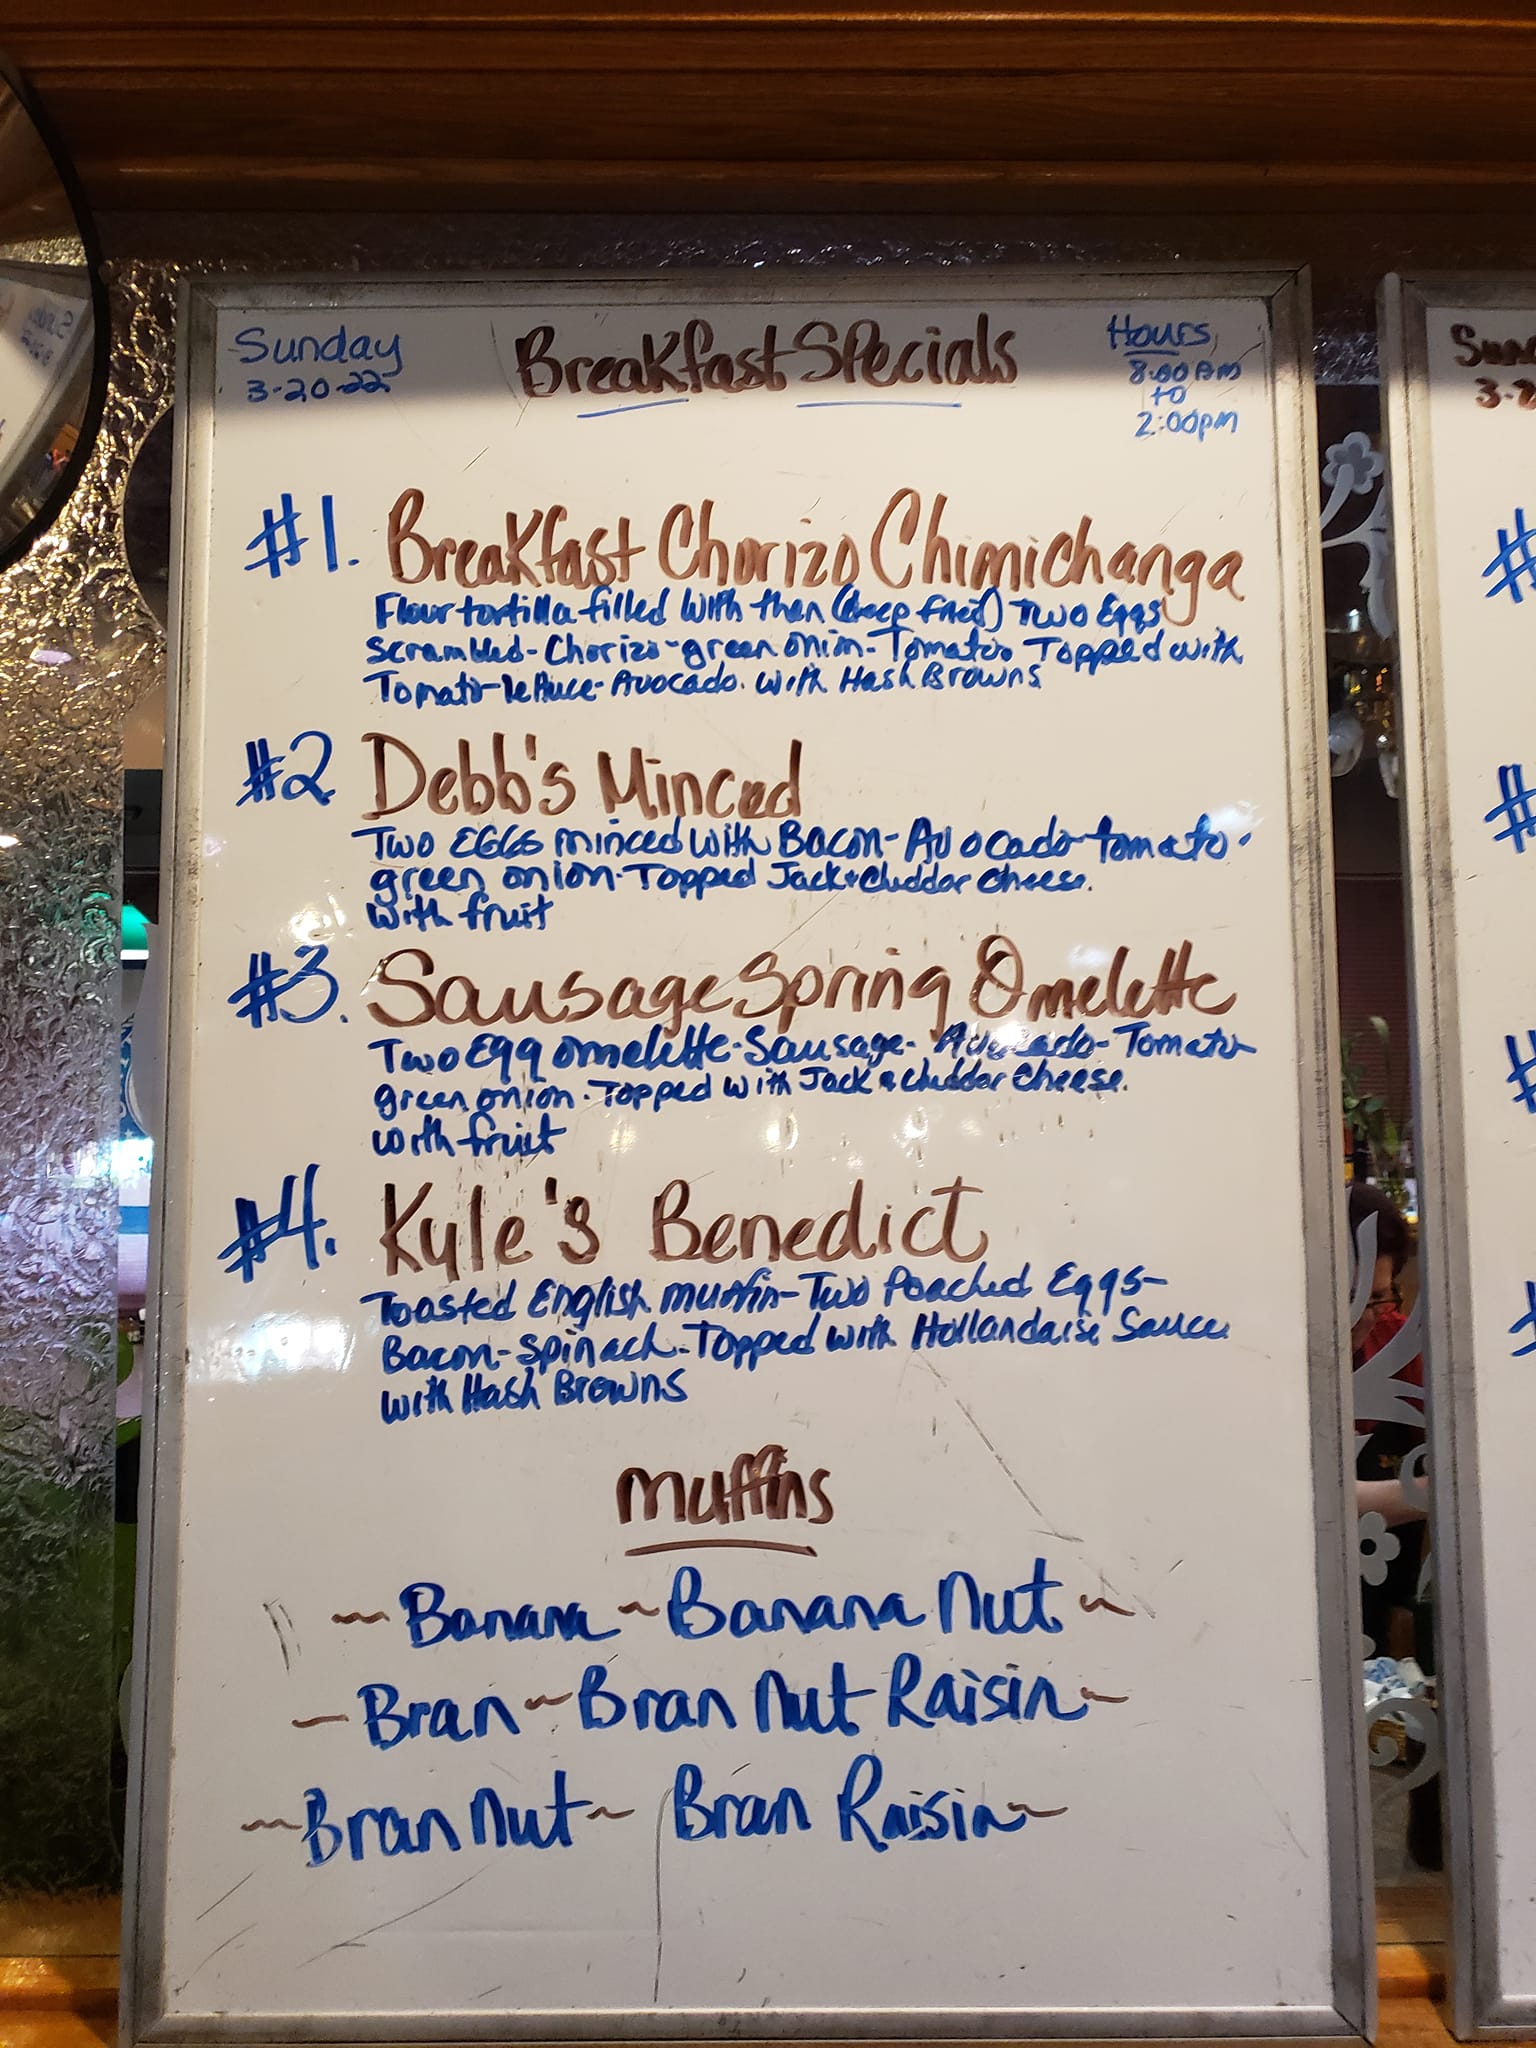 Sunday
3-20-22
Breakfast Specials
Hours
8:00 AM
to
2:00pm
#1. Breakfast Chorizo Chimichanga
Flour tortilla filled with then (deep fried) Two Eggs
Scrambled - Chorizo - green onion - Tomato. Topped with
Tomato - lettuce - Avocado. with Hash Browns
#2 Debb's Minced
Two EGGS minced with Bacon - Avocado - tomato -
green onion - Topped Jack + Cheddar Cheese.
with fruit
#3. Sausage Spring Omelette
Two Egg omelette - Sausage - Avocado - Tomato
green onion - Topped with Jack & Cheddar Cheese.
with fruit
#4. Kyle's Benedict
Toasted English muffin - Two Poached Eggs -
Bacon - Spinach - Topped with Hollandaise Sauce
with Hash Browns
Muffins
~ Banana ~ Banana Nut ~
~ Bran ~ Bran Nut Raisin ~
~ Bran Nut ~ Bran Raisin ~
#
#
#